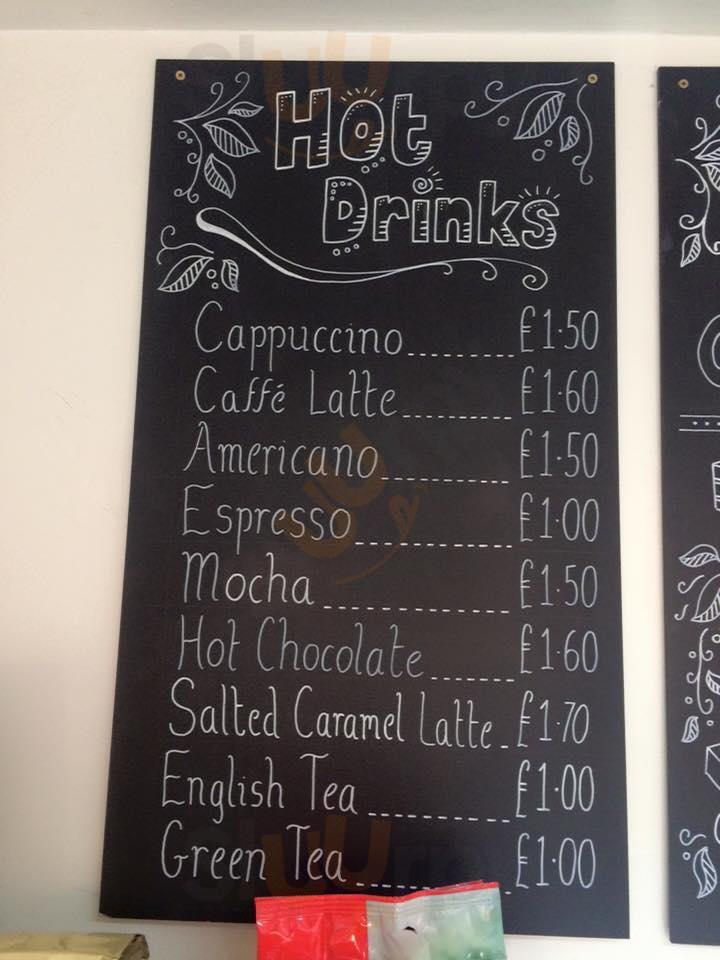 Hot
Drinks
Cappuccino........£1.50
Caffé Latte........£1.60
Americano........£1.50
Espresso........£1.00
Mocha........£1.50
Hot Chocolate......£1.60
Salted Caramel Latte..£1.70
English Tea........£1.00
Green Tea........£1.00